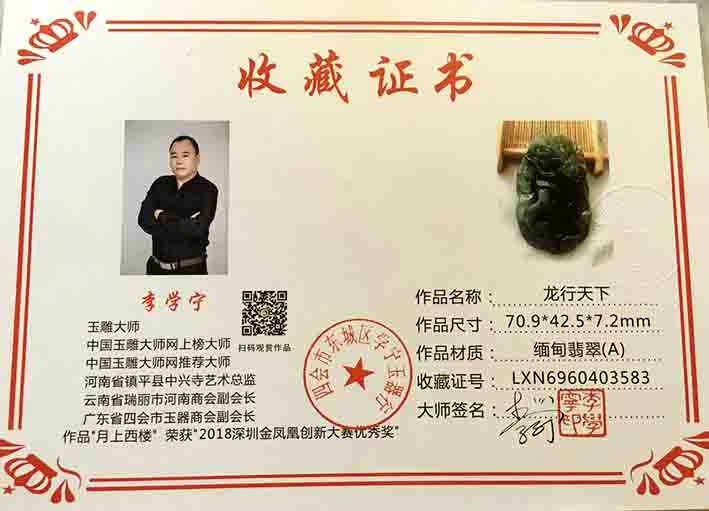 收藏证书
李学宁
扫码观赏作品
玉雕大师
中国玉雕大师网上榜大师
中国玉雕大师网推荐大师
河南省镇平县中兴寺艺术总监
云南省瑞丽市河南商会副会长
广东省四会市玉器商会副会长
作品"月上西楼" 荣获"2018深圳金凤凰创新大赛优秀奖"
四会市东城区学宁玉器行
作品名称: 龙行天下
作品尺寸: 70.9*42.5*7.2mm
作品材质: 缅甸翡翠(A)
收藏证号: LXN6960403583
大师签名:
李學寧印